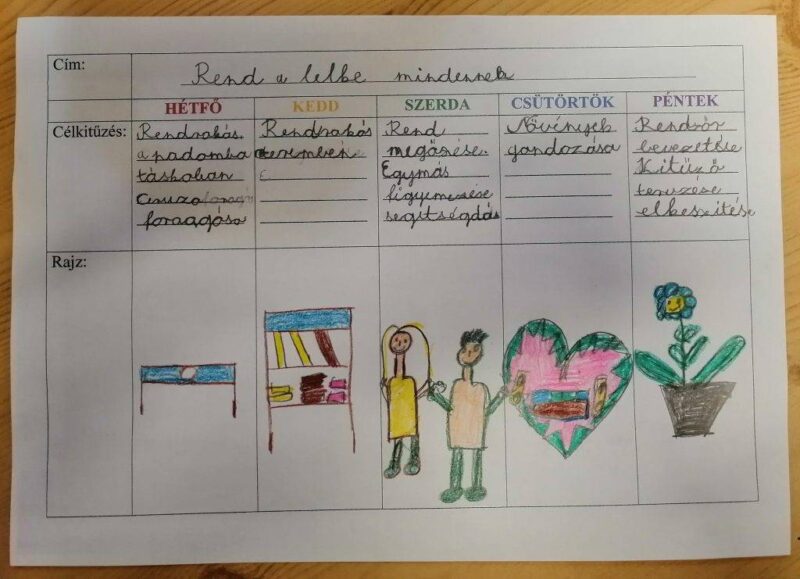 Cím:
Rend a lelke mindennek
HÉTFŐ KEDD SZERDA CSÜTÖRTÖK PÉNTEK
Célkitűzés:
Rendrakás
a padomba
táskában
Ceruza
faragása
Rendrakás
teremben
Rend
megőrzése.
Egymás
figyemezése
segítségdás
Növények
gondozása
Rendőr
bevezetése
Kitűző
tervezése
elkeszítése
Rajz: